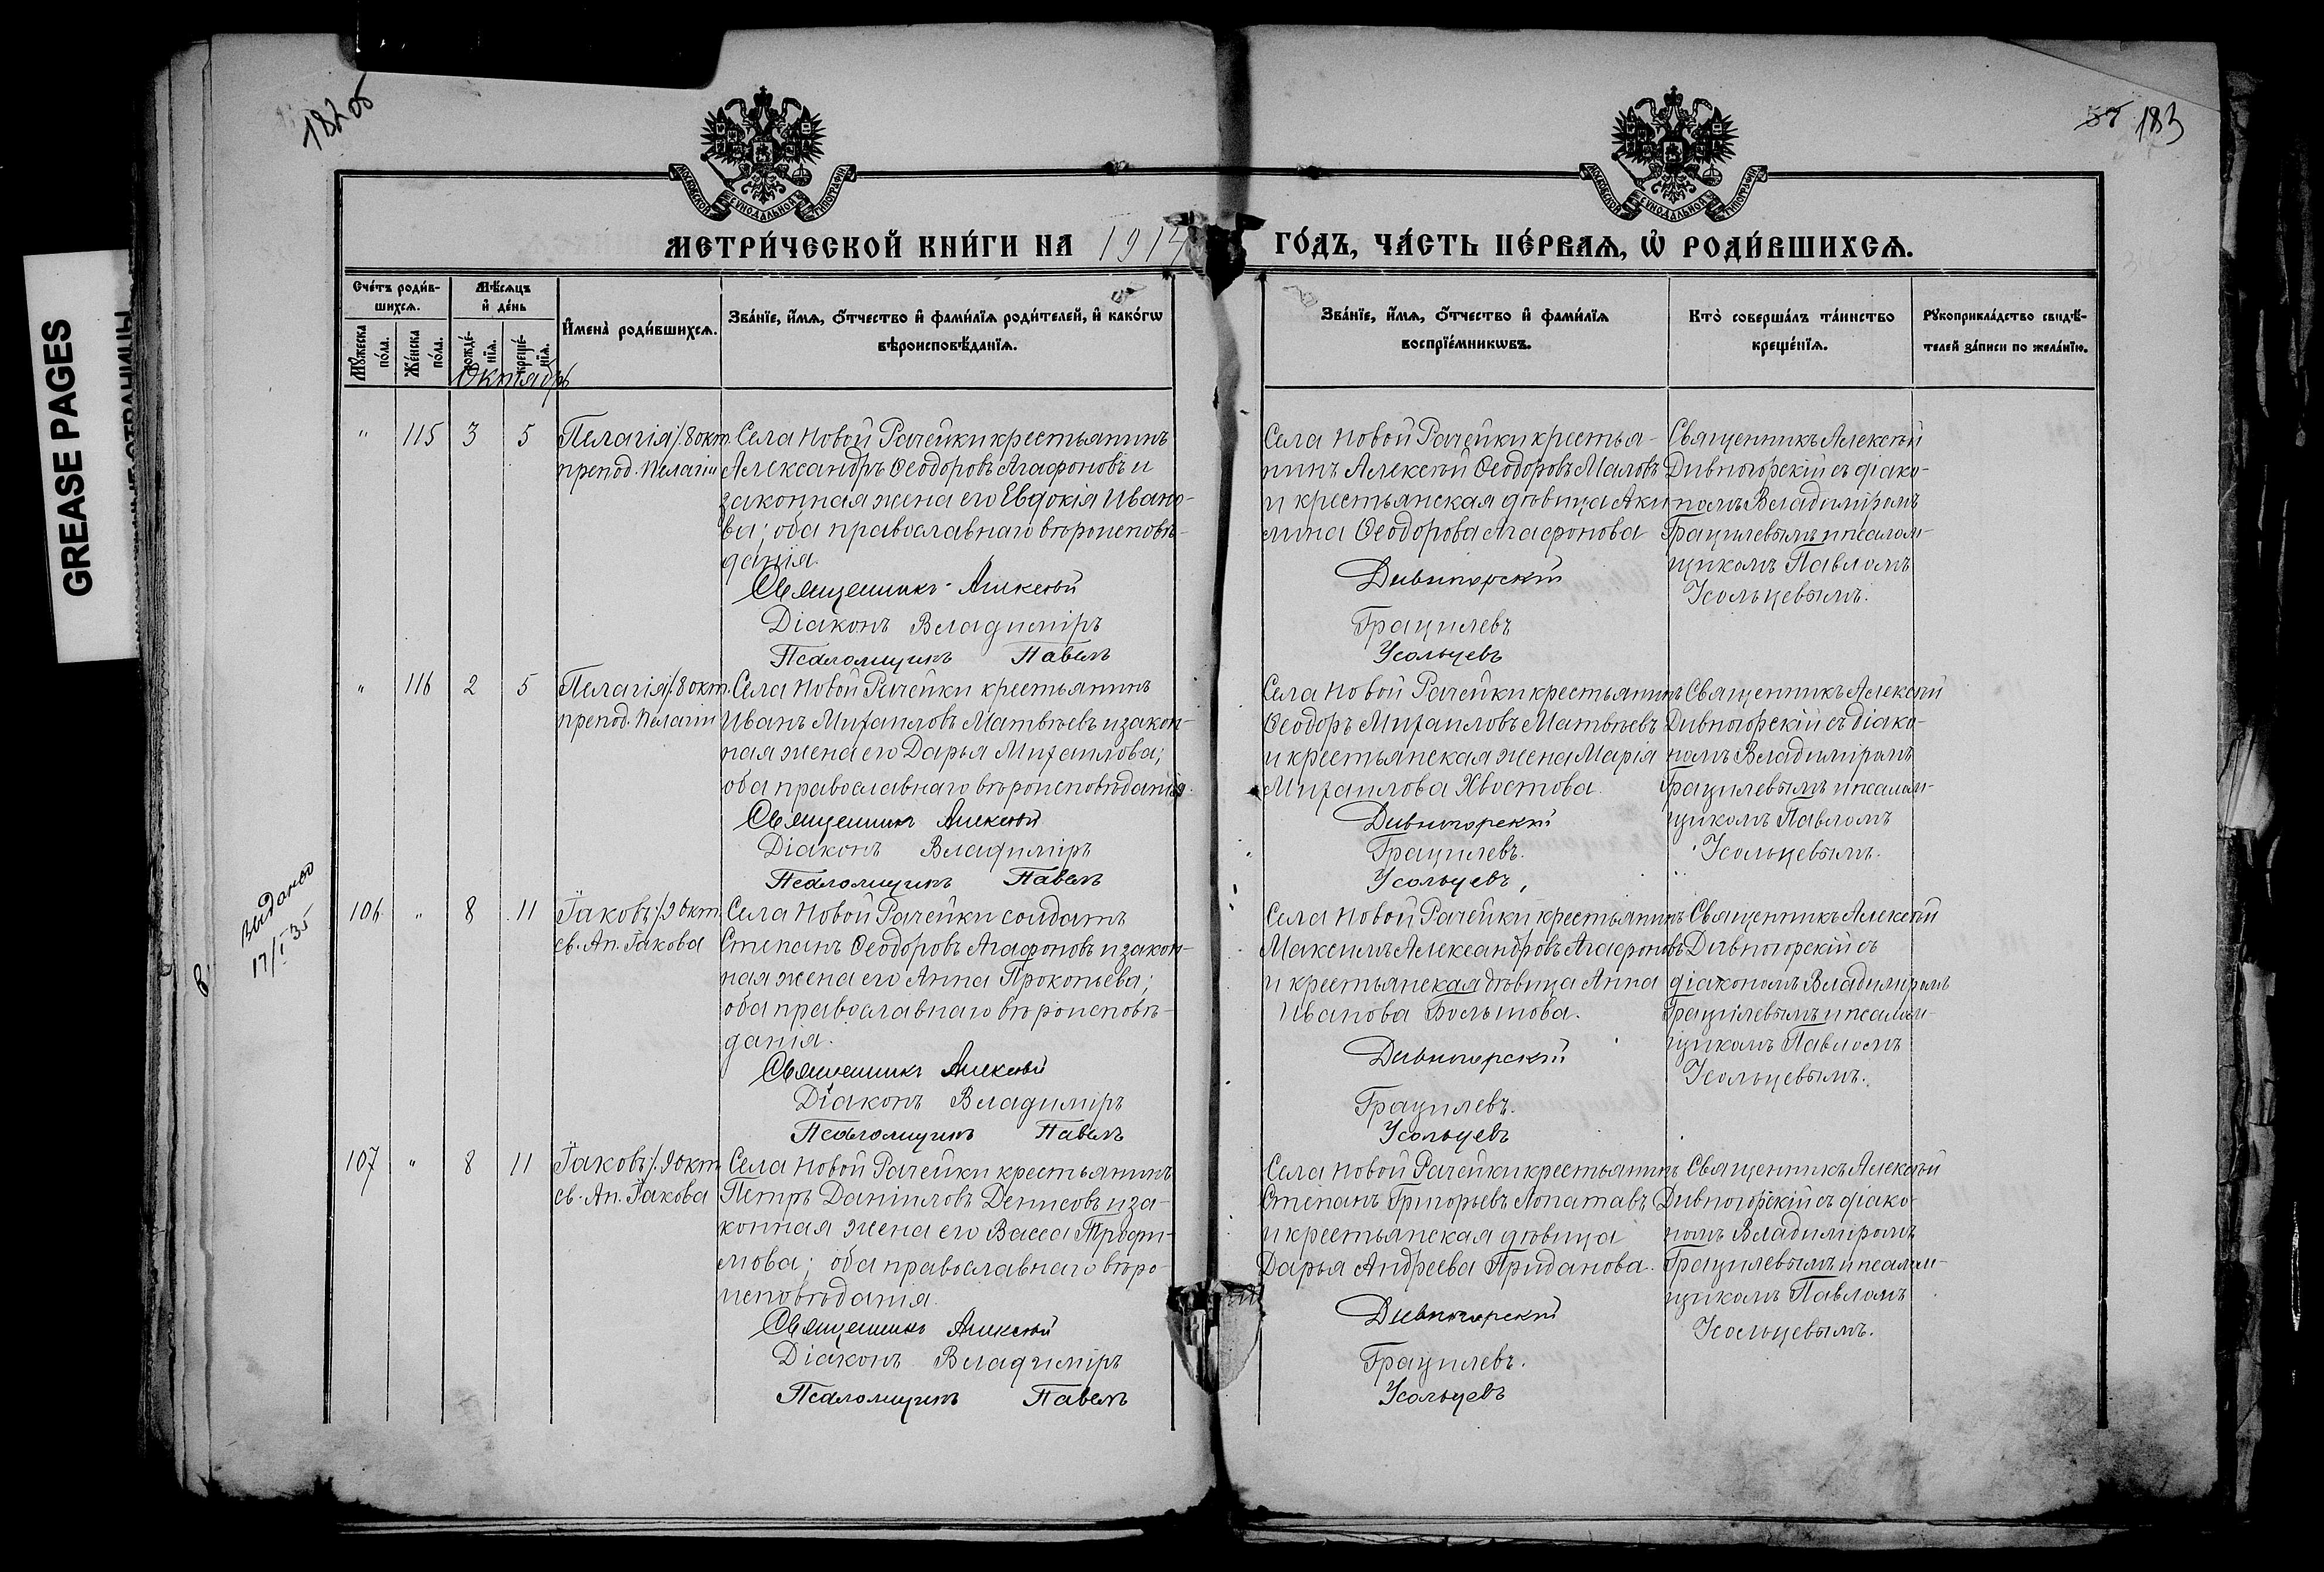 GREASE PAGES
182об
57 183
МОСКОВСКОЙ СѴНОДАЛЬНОЙ ТИПОГРАФІИ
МОСКОВСКОЙ СѴНОДАЛЬНОЙ ТИПОГРАФІИ
МЕТРИ́ЧЕСКОЙ КНИ́ГИ НА 1914
ГО́ДЪ, ЧА́СТЬ ПЕ́РВАѦ, Ѡ҆ РОДИ́ВШИХСѦ.
Сче́тъ роди́в-
шихсѧ.
Мѣ́сѧцъ
и҆ де́нь
Мꙋ́жеска
по́ла.
Же́нска
по́ла.
рожде́-
нїѧ.
креще́-
нїѧ.
И҆мена̀ роди́вшихсѧ.
Зва́нїе, и҆́мѧ, ѻ҆́тчество и҆ фами́лїѧ роди́телей, и҆ како́гѡ
вѣроисповѣ́данїѧ.
Зва́нїе, и҆́мѧ, ѻ҆́тчество и҆ фами́лїѧ
воспрїе́мникѡвъ.
Кто̀ соверша́лъ та́инство
креще́нїѧ.
Рꙋкоприкла́дство свидѣ́-
телей за́писи по жела́нїю.
Октябрь
" 115 3 5
Пелагія /8 окт.
препод. Пелагіи
Села Новой Рачейки крестьянинъ
Александръ Ѳеодоровъ Агафоновъ и
законная жена его Евдокія Ивано-
ва; оба православнаго вѣроисповѣ-
данія.
Священникъ Алексѣй
Діаконъ Владиміръ
Псаломщикъ Павелъ
Села Новой Рачейки крестья-
нинъ Алексѣй Ѳеодоровъ Маловъ
и крестьянская дѣвица Аки
лина Ѳеодорова Агафонова
Дивногорскій
Грацилевъ
Усольцевъ
Священникъ Алексѣй
Дивногорскій съ діако-
номъ Владиміромъ
Грацилевымъ и псалом-
щикомъ Павломъ
Усольцевымъ.
" 116 2 5
Пелагія /8 окт.
препод. Пелагіи
Села Новой Рачейки крестьянинъ
Иванъ Михаиловъ Матвѣевъ и закон-
ная жена его Дарья Михаилова;
оба православнаго вѣроисповѣданія.
Священникъ Алексѣй
Діаконъ Владиміръ
Псаломщикъ Павелъ
Села Новой Рачейки крестьянинъ
Ѳеодоръ Михаиловъ Матвѣевъ
и крестьянская жена Марія
Михаилова Хвостова.
Дивногорскій
Грацилевъ.
Усольцевъ,
Священникъ Алексѣй
Дивногорскій съ діако-
номъ Владиміромъ
Грацилевымъ и псалом-
щикомъ Павломъ
Усольцевымъ.
Выдано
17/I 35
106 " 8 11
Іаковъ /9 окт.
св. Ап. Іакова
Села Новой Рачейки солдатъ
Степанъ Ѳеодоровъ Агафоновъ и закон-
ная жена его Анна Прокопьева;
оба православнаго вѣроисповѣ-
данія.
Священникъ Алексѣй
Діаконъ Владиміръ
Псаломщикъ Павелъ
Села Новой Рачейки крестьянинъ
Максимъ Александровъ Агафоновъ
и крестьянская дѣвица Анна
Иванова Большова.
Дивногорскій
Грацилевъ.
Усольцевъ
Священникъ Алексѣй
Дивногорскій съ
діакономъ Владиміромъ
Грацилевымъ и псалом-
щикомъ Павломъ
Усольцевымъ.
107 " 8 11
Іаковъ /9 окт.
св. Ап. Іакова
Села Новой Рачейки крестьянинъ
Петръ Даніиловъ Денисовъ и за-
конная жена его Васса Трофи-
мова; оба православнаго вѣро-
исповѣданія.
Священникъ Алексѣй
Діаконъ Владиміръ
Псаломщикъ Павелъ
Села Новой Рачейки крестьянинъ
Степанъ Григорьевъ Лопатавъ
и крестьянская дѣвица
Дарья Андреева Приданова.
Дивногорскій
Грацилевъ.
Усольцевъ
Священникъ Алексѣй
Дивногорскій съ діако-
номъ Владиміромъ
Грацилевымъ и псалом-
щикомъ Павломъ
Усольцевымъ.